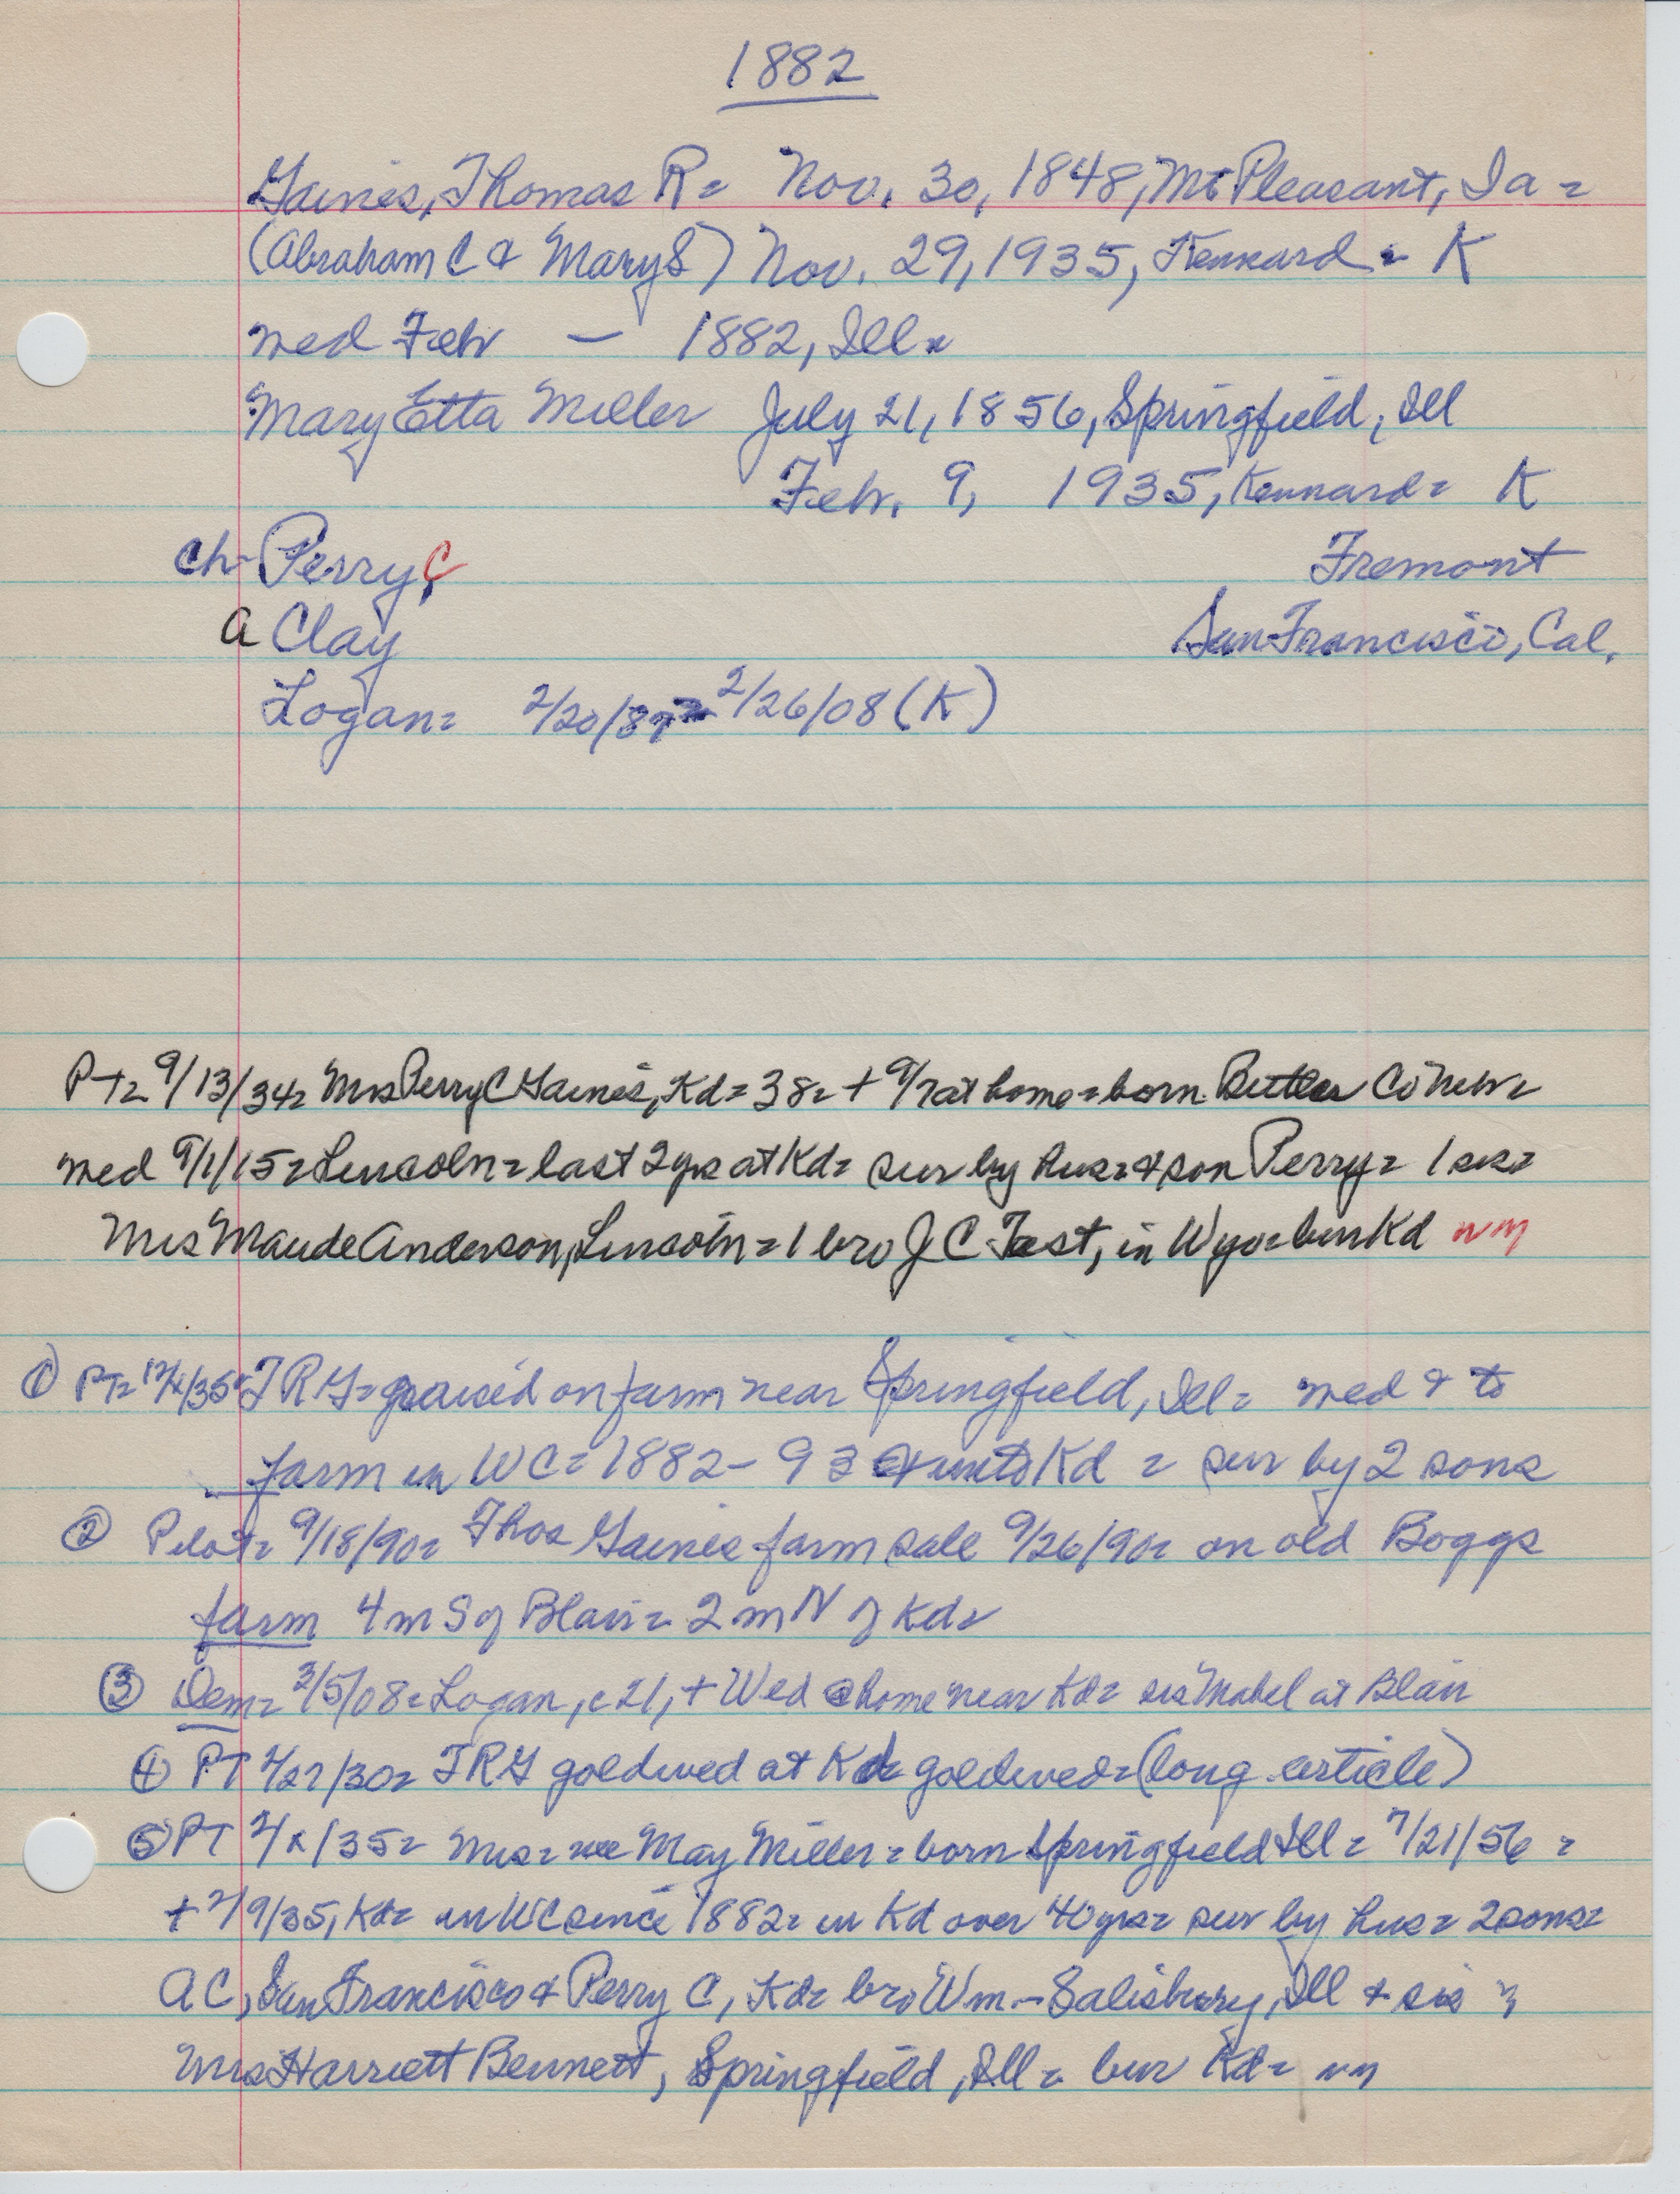 1882
Gaines, Thomas R= Nov. 30, 1848, Mt Pleasant, Ia =
(Abraham C & Mary S) Nov. 29, 1935, Kennard = K
med Feb — 1882, Ill =
Mary Etta Miller July 21, 1856, Springfield, Ill
Feb. 9, 1935, Kennard = K
ch- Perry C Fremont
A Clay San Francisco, Cal.
Logan = 2/20/87 = 2/26/08 (K)
PT= 9/13/34= Mrs Perry C Gaines, Kd = 38 = + 9/7 at home = born Butler Co Nebr =
med 9/1/15 = Lincoln = last 2 yrs at Kd = sur by hus = & son Perry = 1 sis =
Mrs Maude Anderson, Lincoln = 1 bro J C Fast, in Wyo = bur Kd nm
① PT= 12/ /35= TRG = raised on farm near Springfield, Ill = med & to
farm in WC = 1882-93 & into Kd = sur by 2 sons
② Pilot= 9/18/90= Thos Gaines farm sale 9/26/90= on old Boggs
farm 4 m S of Blair = 2 m N of Kd =
③ Dem= 3/5/08= Logan, c 21, + Wed @ home near Kd = sis Mabel at Blair
④ PT 2/27/30= TRG goldwed at Kd = goldwed = (long article)
⑤ PT 2/x/35= Mrs = nee May Miller = born Springfield Ill = 7/21/56 =
+ 2/9/35, Kd = in WC since 1882 = in Kd over 40 yrs = sur by hus = 2 sons =
AC, San Francisco & Perry C, Kd = bro Wm - Salisbury, Ill & sis =
Mrs Harriett Bennett, Springfield, Ill = bur Kd = nm